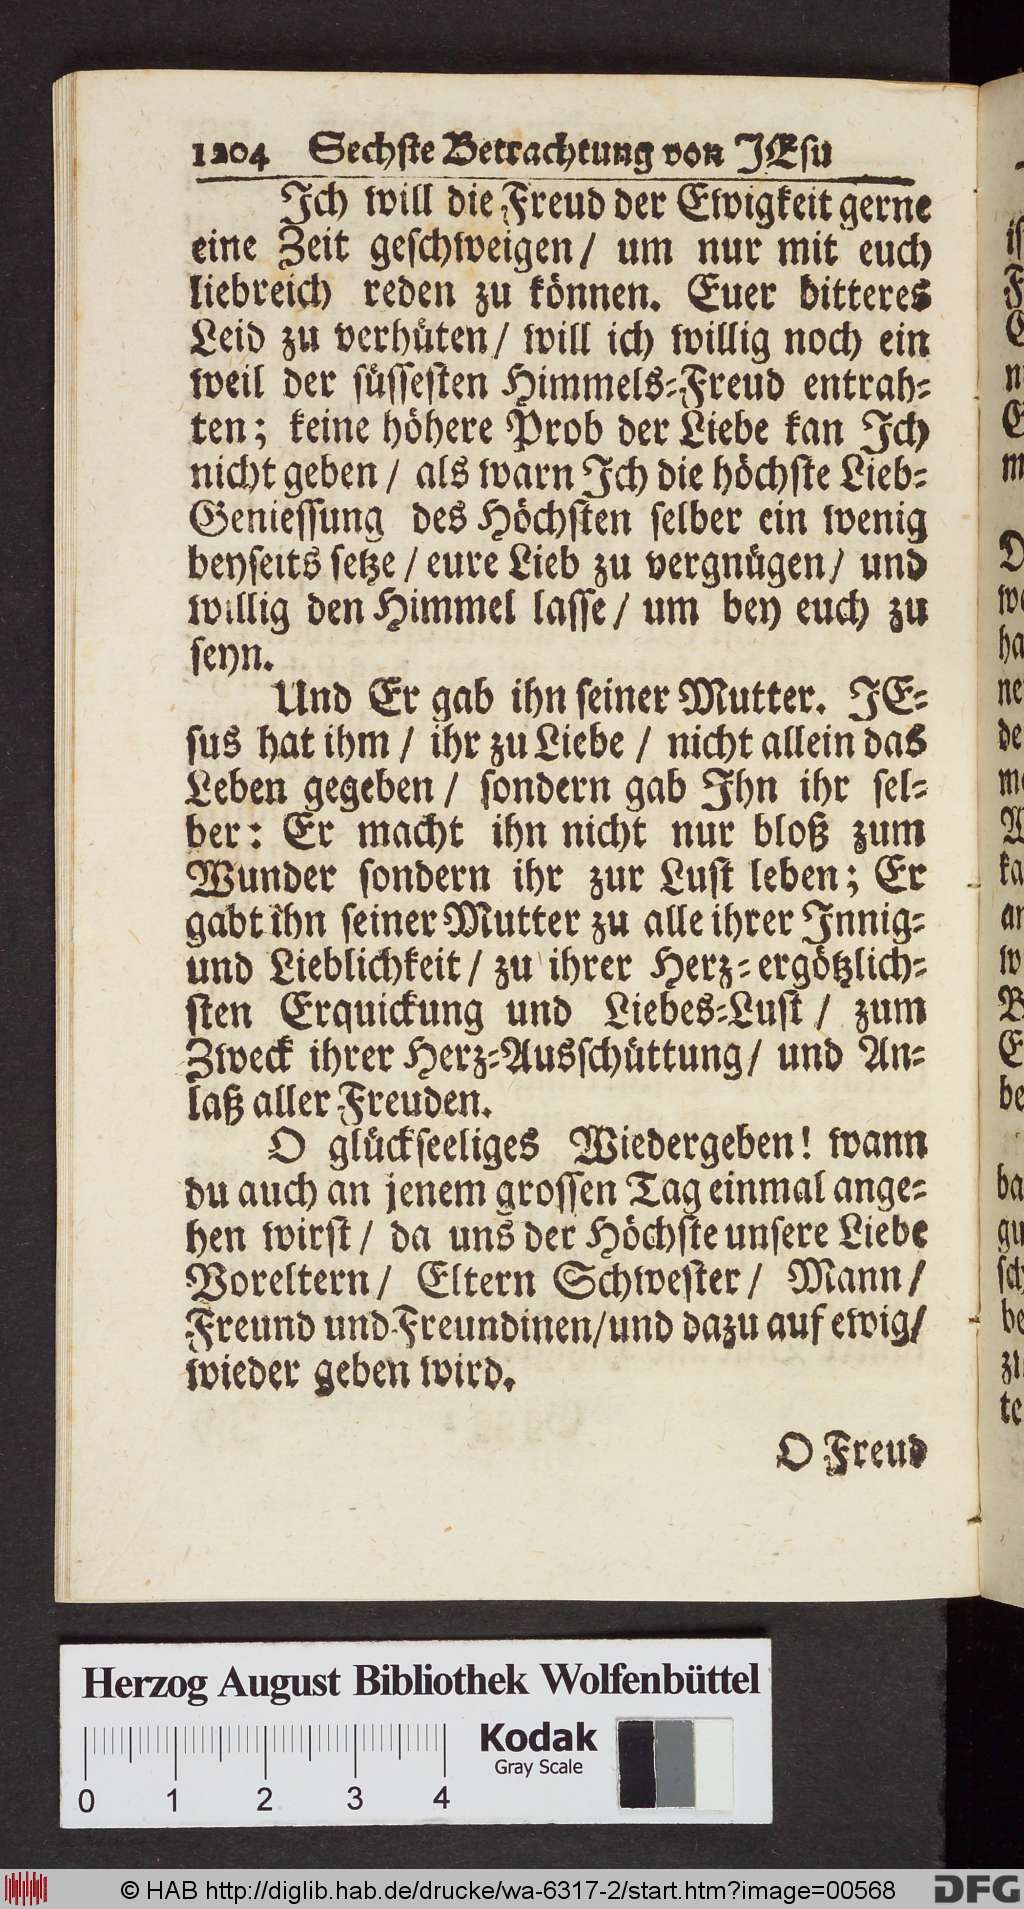 1204 Sechste Betrachtung von JEsu
Jch will die Freud der Ewigkeit gerne
eine Zeit geschweigen / um nur mit euch
liebreich reden zu können. Euer bitteres
Leid zu verhüten / will ich willig noch ein
weil der süssesten Himmels-Freud entrah-
ten; keine höhere Prob der Liebe kan Jch
nicht geben / als warn Jch die höchste Lieb-
Geniessung des Höchsten selber ein wenig
beyseits setze / eure Lieb zu vergnügen / und
willig den Himmel lasse / um bey euch zu
seyn.
Und Er gab ihn seiner Mutter. JE-
sus hat ihm / ihr zu Liebe / nicht allein das
Leben gegeben / sondern gab Jhn ihr sel-
ber: Er macht ihn nicht nur bloß zum
Wunder sondern ihr zur Lust leben; Er
gabt ihn seiner Mutter zu alle ihrer Jnnig-
und Lieblichkeit / zu ihrer Herz-ergötzlich-
sten Erquickung und Liebes-Lust / zum
Zweck ihrer Herz-Ausschüttung / und An-
laß aller Freuden.
O glückseeliges Wiedergeben! wann
du auch an jenem grossen Tag einmal ange-
hen wirst / da uns der Höchste unsere Liebe
Voreltern / Eltern Schwester / Mann /
Freund und Freundinen / und dazu auf ewig /
wieder geben wird.
O Freud
Herzog August Bibliothek Wolfenbüttel
Kodak
Gray Scale
0 1 2 3 4
© HAB http://diglib.hab.de/drucke/wa-6317-2/start.htm?image=00568
DFG